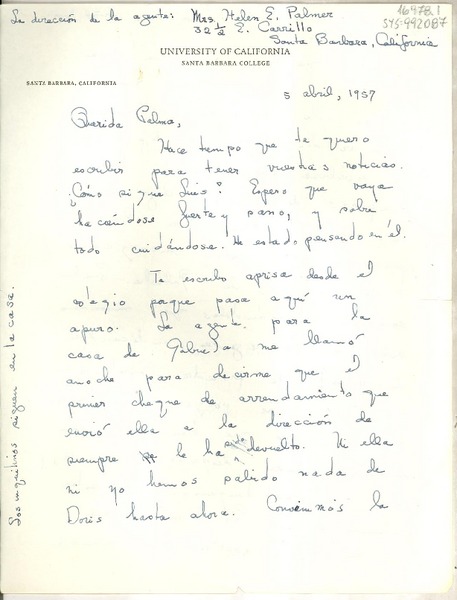 La dirección de la agente: Mrs. Helen E. Palmer
32 ½ E. Carrillo
Santa Barbara, California
SYS-992087
UNIVERSITY OF CALIFORNIA
SANTA BARBARA COLLEGE
SANTA BARBARA, CALIFORNIA
5 abril, 1957
Querida Palma,
Hace tiempo que te quero
escribir para tener vuestras noticias.
¿Cómo sigue Luis? Espero que vaya
haciéndose fuerte y sano, y sobre
todo cuidándose. He estado pensando en él.
Te escribo aprisa desde el
colegio porque pasa aquí un
apuro. La agente para la
casa de Gabriela me llamó
anoche para decirme que el
primer cheque de arrendamiento que
envió ella a la dirección de
siempre le ha sido devuelto. Ni ella
ni yo hemos sabido nada de
Doris hasta ahora. Convenimos la
Los inquilinos siguen en la casa.